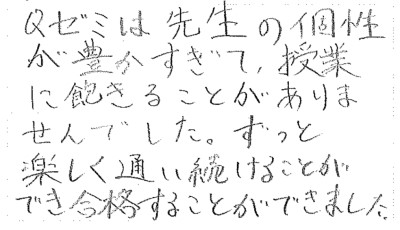 Qゼミは先生の個性
が豊かすぎて、授業
に飽きることがありま
せんでした。ずっと
楽しく通い続けることが
でき合格することができました